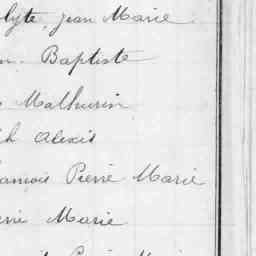 lyte, Jean Marie
n. Baptiste
Mathurin
h Alexis
ançois Pierre Marie
rre Marie
Marie